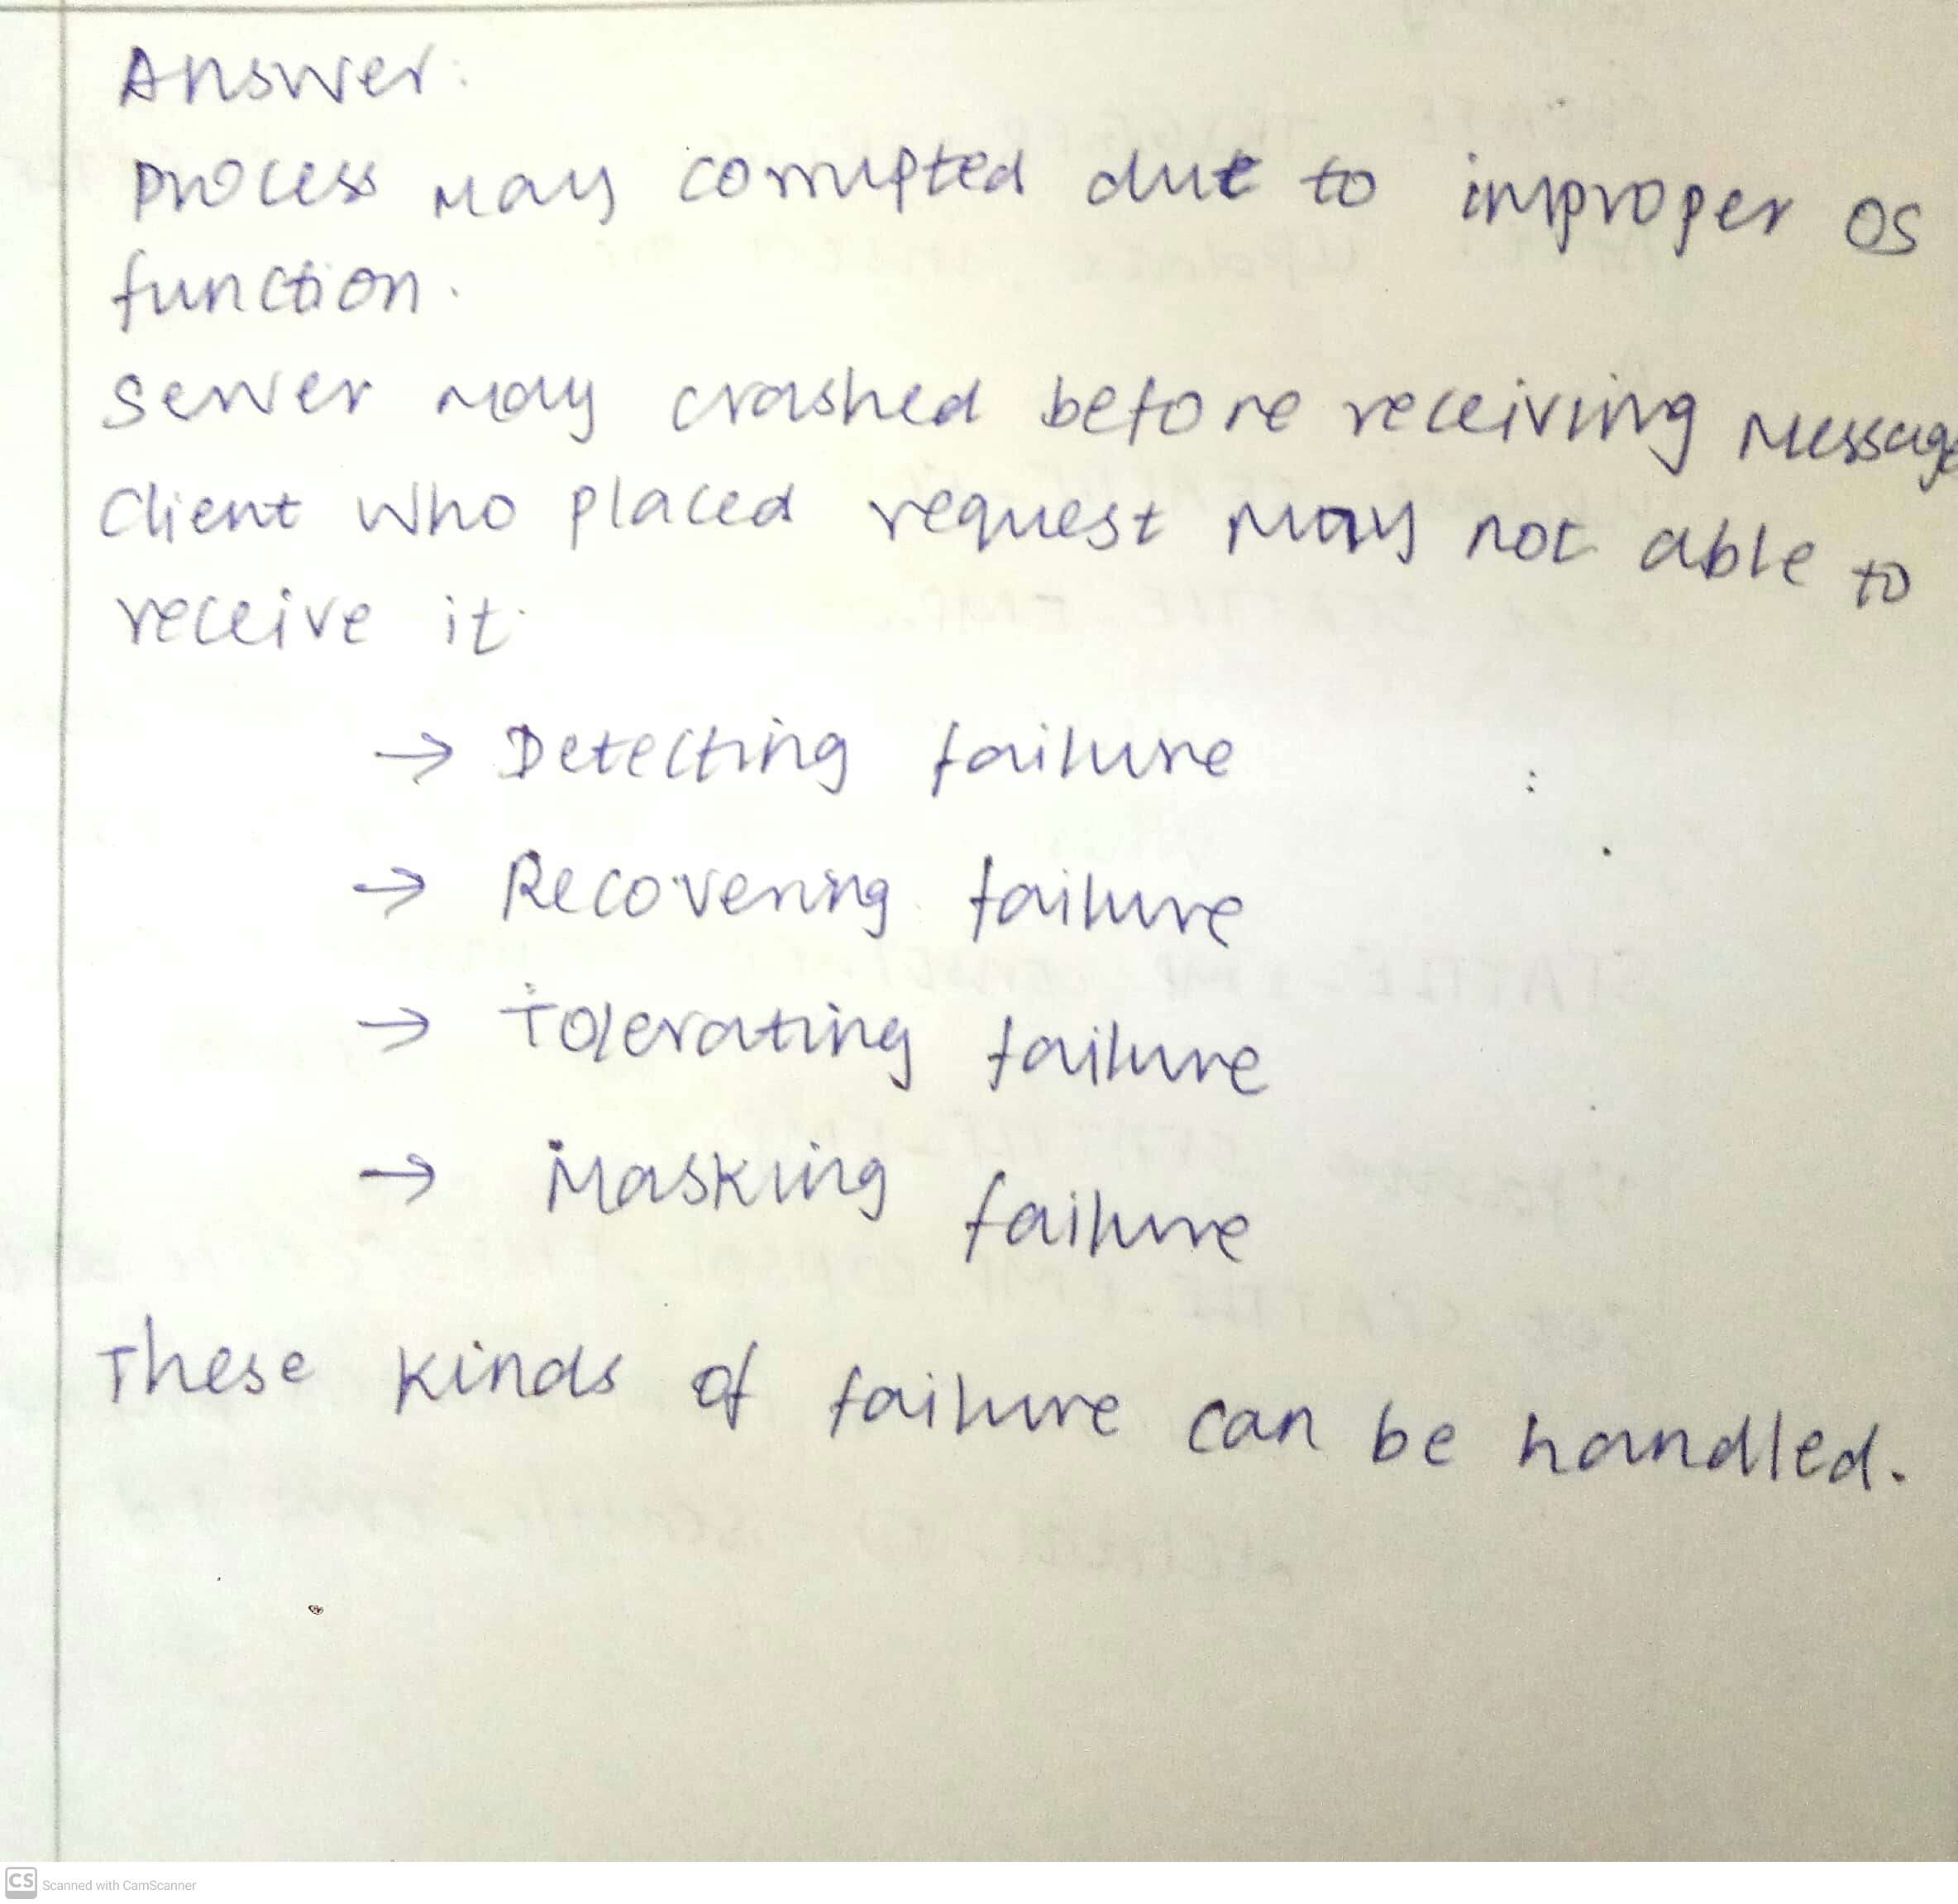 Answer:
process may corrupted due to improper OS
function.
server may crashed before receiving message
Client who placed request may not able to
receive it.
→ Detecting failure
→ Recovering failure
→ Tolerating failure
→ Masking failure
These kinds of failure can be handled.
CS Scanned with CamScanner